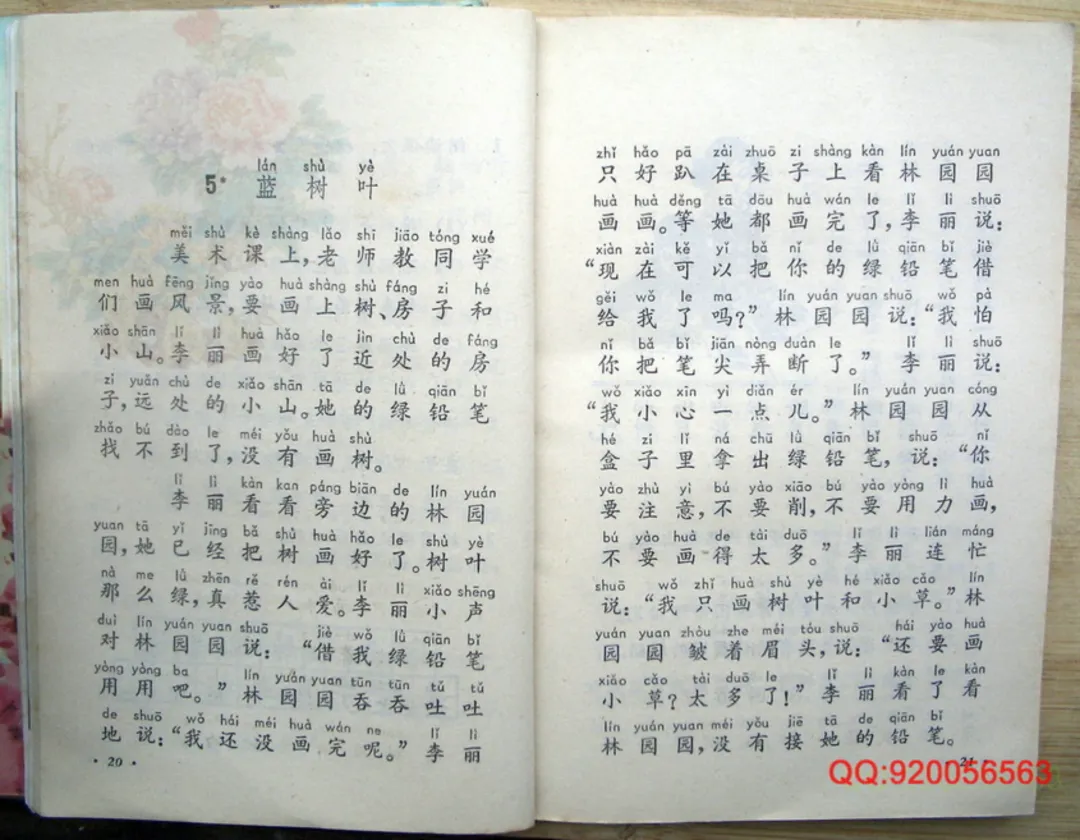 lán shù yè
5· 蓝树叶
měi shù kè shàng lǎo shī jiāo tóng xué
美术课上,老师教同学
men huà fēng jǐng yào huà shàng shù fáng zi hé
们画风景,要画上树、房子和
xiǎo shān lǐ lì huà hǎo le jìn chù de fáng
小山。李丽画好了近处的房
zi yuǎn chù de xiǎo shān tā de lǜ qiān bǐ
子,远处的小山。她的绿铅笔
zhǎo bú dào le méi yǒu huà shù
找不到了,没有画树。
lǐ lì kàn kan páng biān de lín yuán
李丽看看旁边的林园
yuan tā yǐ jīng bǎ shù huà hǎo le shù yè
园,她已经把树画好了。树叶
nà me lǜ zhēn rě rén ài lǐ lì xiǎo shēng
那么绿,真惹人爱。李丽小声
duì lín yuán yuan shuō jiè wǒ lǜ qiān bǐ
对林园园说:“借我绿铅笔
yòng yòng ba lín yuán yuan tūn tūn tǔ tǔ
用用吧。”林园园吞吞吐吐
de shuō wǒ hái méi huà wán ne lǐ lì
地说:“我还没画完呢。”李丽
· 20 ·
zhǐ hǎo pā zài zhuō zi shàng kàn lín yuán yuan
只好趴在桌子上看林园园
huà huà děng tā dōu huà wán le lǐ lì shuō
画画。等她都画完了,李丽说:
xiàn zài kě yǐ bǎ nǐ de lǜ qiān bǐ jiè
“现在可以把你的绿铅笔借
gěi wǒ le ma lín yuán yuan shuō wǒ pà
给我了吗?”林园园说:“我怕
nǐ bǎ bǐ jiān nòng duàn le lǐ lì shuō
你把笔尖弄断了。”李丽说:
wǒ xiǎo xīn yì diǎn ér lín yuán yuan cóng
“我小心一点儿。”林园园从
hé zi lǐ ná chū lǜ qiān bǐ shuō nǐ
盒子里拿出绿铅笔,说:“你
yào zhù yì bú yào xiāo bú yào yòng lì huà
要注意,不要削,不要用力画,
bú yào huà de tài duō lǐ lì lián máng
不要画得太多。”李丽连忙
shuō wǒ zhǐ huà shù yè hé xiǎo cǎo lín
说:“我只画树叶和小草。”林
yuán yuan zhòu zhe méi tóu shuō hái yào huà
园园皱着眉头,说:“还要画
xiǎo cǎo tài duō le lǐ lì kàn le kàn
小草?太多了!”李丽看了看
lín yuán yuan méi yǒu jiē tā de qiān bǐ
林园园,没有接她的铅笔。
· 21 ·
QQ:920056563